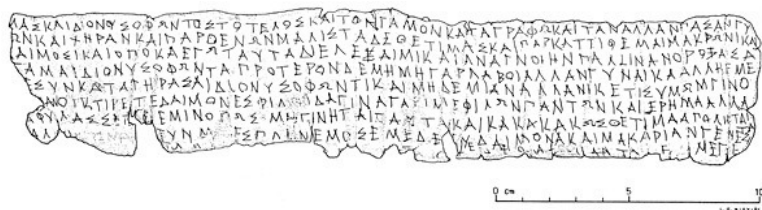 ΜΑΣΚΑΙΔΙΟΝΥΣΟΦΩΝΤΟΣΤΟΤΕΛΟΣΚΑΙΤΟΝΓΑΜΟΝΚΑΤΑΓΡΑΦΩΚΑΙΤΑΝΑΛΛΑΝΠΑΣΑΝΓΥ
ΩΝΚΑΙΧΗΡΑΝΚΑΙΠΑΡΘΕΝΩΝΜΑΛΙΣΤΑΔΕΘΕΤΙΜΑΣΚΑΙΠΑΡΚΑΤΤΙΘΕΜΑΙΜΑΚΡΩΝΙΚΑΙ
ΔΑΙΜΟΣΙΚΑΙΟΠΟΚΑΕΓΩΤΑΥΤΑΔΙΕΛΕΞΑΙΜΙΚΑΙΑΝΑΓΝΟΙΗΝΠΑΛΙΝΑΝΟΡΟΞΑΣΑ
ΓΑΜΑΙΔΙΟΝΥΣΟΦΩΝΤΑΠΡΟΤΕΡΟΝΔΕΜΗΜΗΓΑΡΛΑΒΟΙΑΛΛΑΝΓΥΝΑΙΚΑΑΛΛΗΕΜΕ
ΕΣΥΝΚΑΤΑΓΗΡΑΣΑΙΔΙΟΝΥΣΟΦΩΝΤΙΚΑΙΜΗΔΕΜΙΑΝΑΛΛΑΝΙΚΕΤΙΣΥΜΩΜΓΙΝΟ
ΑΝΟΙΚΤΙΡΕΤΕΔΑΙΜΟΝΕΣΦΙΛΟΙΔΑΓΙΝΑΓΑΡΙΜΕΦΙΛΩΝΠΑΝΤΩΝΚΑΙΕΡΗΜΑΑΛΛΑ
ΑΦΥΛΑΣΣΕΤΕΕΜΙΝΟΠΩΣΜΗΓΙΝΗΤΑΙΤΑΥΤΑΚΑΙΚΑΚΑΚΑΚΩΣΘΕΤΙΜΑΑΠΟΛΗΤΑΙ
ΑΛ ΥΝΜ ΕΣΠΛΗΝΕΜΟΣΕΜΕΔΕ ΕΥΔΑΙΜΟΝΑΚΑΙΜΑΚΑΡΙΑΝΓΕΝΕΣ
ΜΕΓΕ
0 cm 5 10